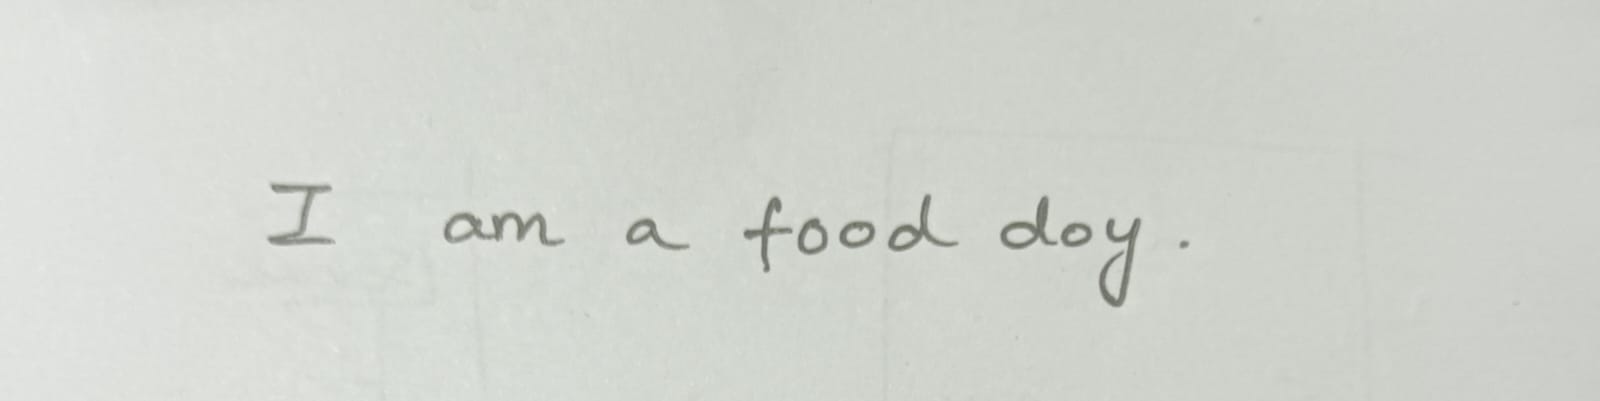 I am a food doy.